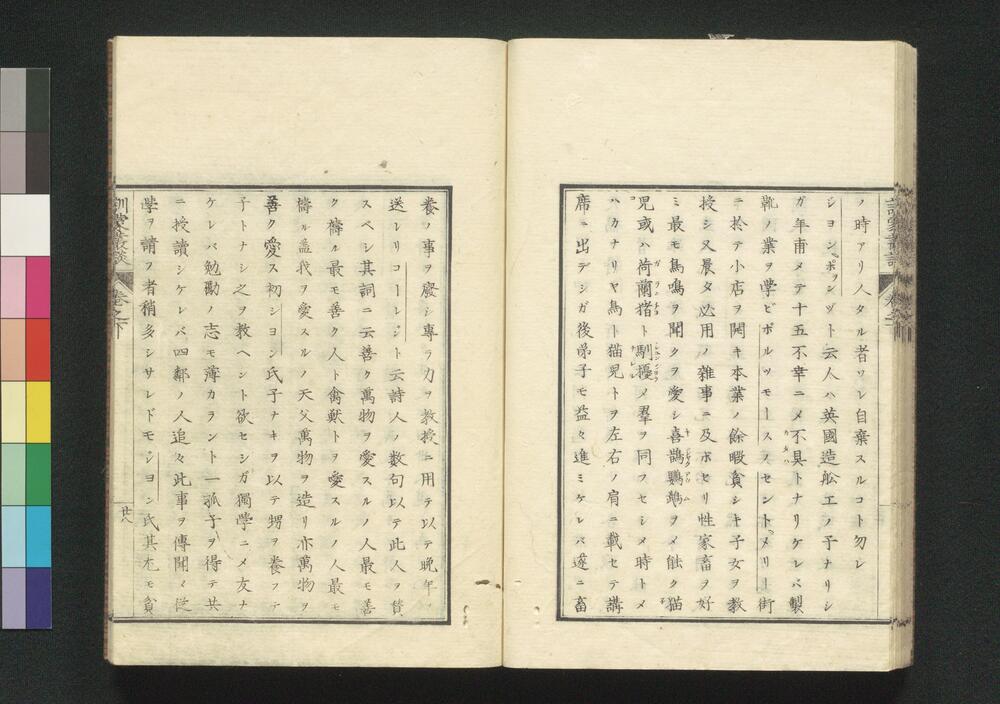 ノ時アリ人タル者ワレ自棄スルコト勿レ
シヨン、ポウンヅト云人ハ英國造舩工ノ子ナリシ
ガ年甫メテ十五不幸ニメ不具トナリケレバ製
靴ノ業ヲ學ビポルツモースノセント、メリー街
ニ於テ小店ヲ開キ本業ノ餘暇貧シキ子女ヲ教
授シ又晨夕必用ノ雑事ニ及ボセリ性家畜ヲ好
ミ最モ鳥鳴ヲ聞クヲ愛シ喜鵲鸚鵡ヲメ能ク猫
児或ハ荷蘭猪ト馴擾メ羣ヲ同フセシメ時トメ
ハカナリヤ鳥ト猫児トヲ左右ノ肩ニ載セテ講
席ニ出デシガ後弟子モ益々進ミケレバ遂ニ畜
養ノ事ヲ廢シ專ラ力ヲ教授ニ用テ以テ晩年ヲ
送レリコーレジト云詩人ノ数句以テ此人ヲ賛
スベシ其詞ニ云善ク萬物ヲ愛スルノ人最モ善
ク禱ル最モ善ク人ト禽獣トヲ愛スルノ人最モ
禱ル盖我ヲ愛スルノ天父萬物ヲ造リ亦萬物ヲ
善ク愛ス初シヨン氏子ナキヲ以テ甥ヲ養フテ
子トナシ之ヲ教ヘント欲セシガ獨學ニメ友ナ
ケレバ勉勵ノ志モ薄カラント一孤子ヲ得テ共
ニ授讀シケレバ四鄰ノ人追々此事ヲ傳聞メ従
學ヲ請フ者稍多シサレドモシヨン氏其尤モ貧
訓蒙叢談 巻之下
廿八